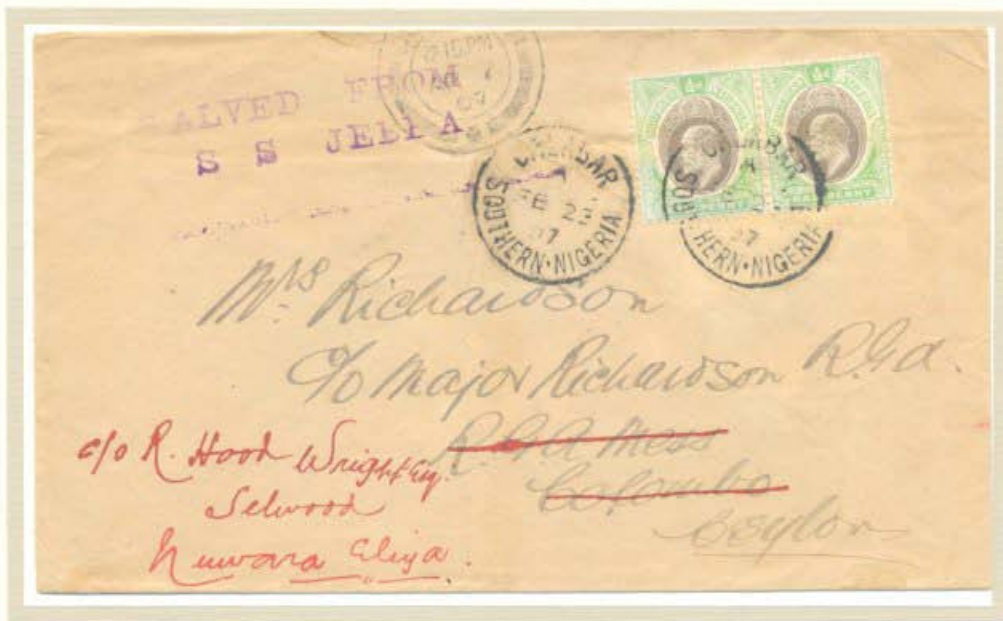 SALVED FROM
S S JEBBA
15 PM
07
4d 4d
CALABAR
FE 23
07
SOUTHERN·NIGERIA
CALABAR
A
07
SOUTHERN·NIGERIA
Mrs Richardson
c/o Major Richardson R.G.A.
R.G.A Mess
Colombo
Ceylon
c/o R. Hood Wright Esq.
Selwood
Nuwara Eliya.